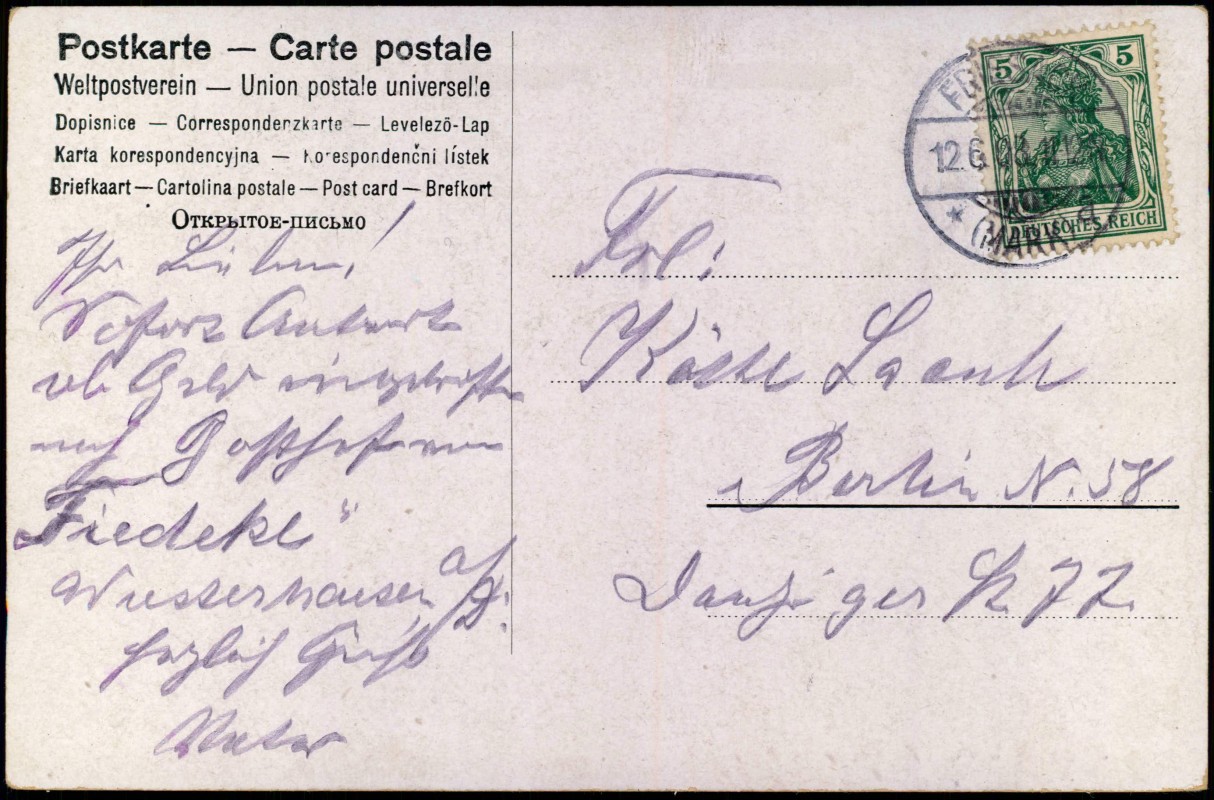 Postkarte — Carte postale
Weltpostverein — Union postale universelle
Dopisnice — Correspondenzkarte — Levelező-Lap
Karta korespondencyjna — Korespondenčni lístek
Briefkaart — Cartolina postale — Post card — Brefkort
Открытое-письмо
Ihr Lieben!
Sofort Antwort
ob Geld eingetroffen
nach Gasthof von
„Fiedeke"
Wusterhausen a/D.
herzlich Gruß
Vater
5 5
DEUTSCHES REICH
12.6
(MARK)
Frl:
Käthe
Berlin N. 58
Danziger St 77